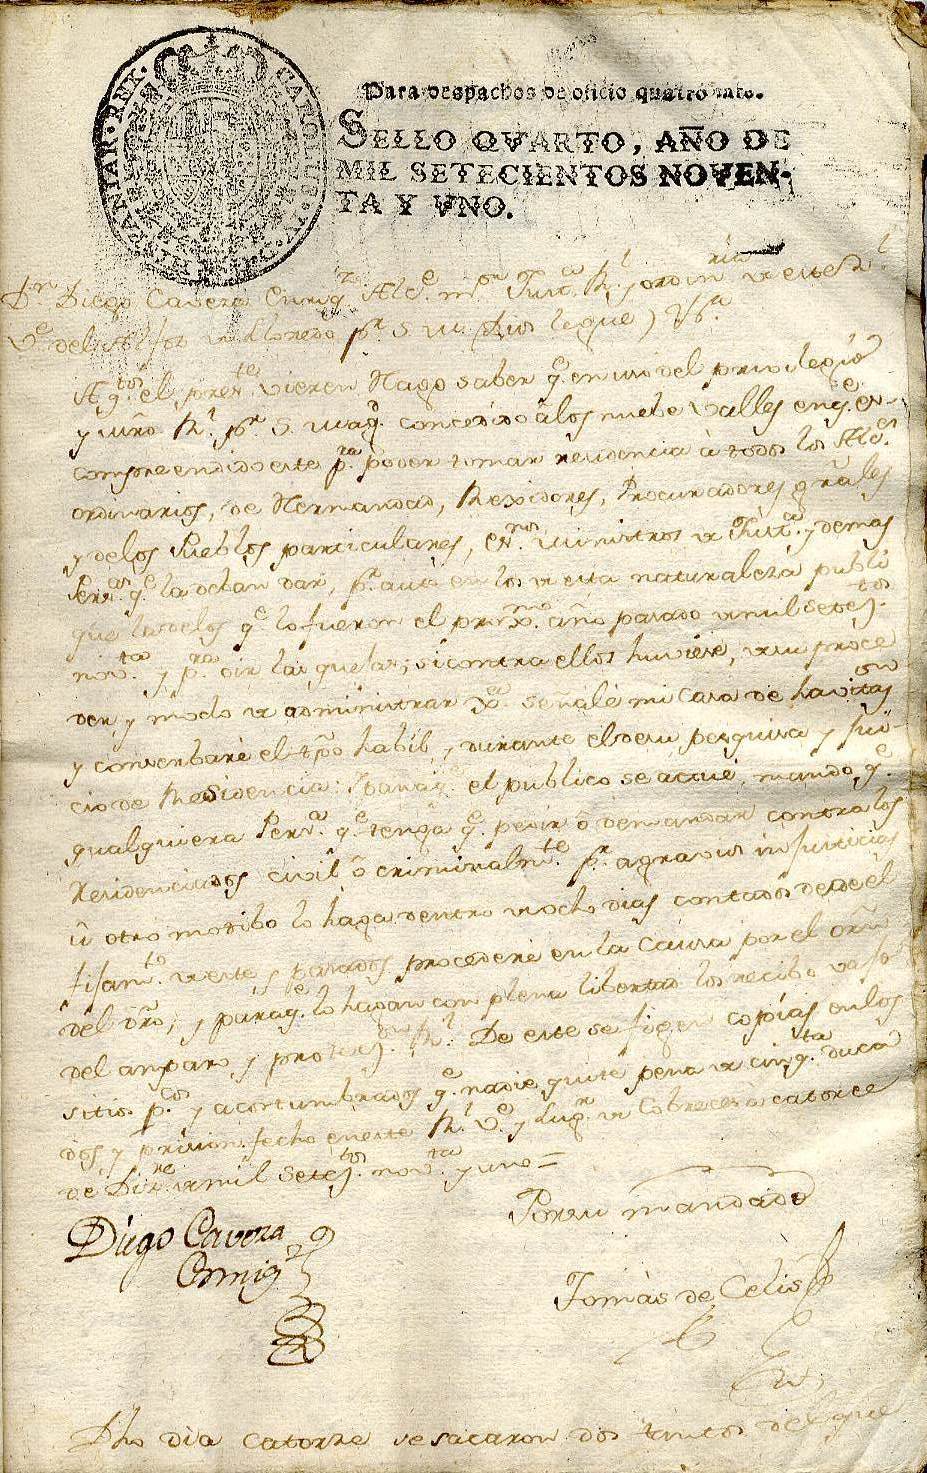 CAROLUS · IV · D · G · HISPANIAR · REX ·
Para despachos de oficio quatro mrs.
SELLO QVARTO, AÑO DE
MIL SETECIENTOS NOVEN-
TA Y VNO.
Dn Diego Cavera Enriqz Alce mor Justa Rl y ordinria de este Rl
Ve del Alfoz de Lloredo pr S. M. Dios legue) Va
A qtos el presnte vieren Hago saber qe en uso del privilegio
y uso Rl pr S. Magd concedido â los nuebe Valles en qe es
compreendido este pa poder tomar residencia à todos los Alces
ordinarios, de Hermandad, Rexidores, Procuradores grales
y delos Pueblos particulares, esnos ministros de Justa y demas
Persas qe la deban dar, pr auto en los de esta naturaleza publi
que la delos qe lo fueron el prmo año pasado de mil setezos
novta y pra oir las quejas, si contra ellos huviere, de su proce
der, y modo de administrar Ja señalé mi casa de havitaon
y conserbaré el tpo habil, durante el de su pesquisa y jui-
cio de Residencia: Y para qe el publico se actue, mando qe
qualquiera Persa qe tenga qe pedir ô demandar contra los
Residenciados civil ô criminalmte pr agravios injusticias
û otro motibo lo haga dentro de ocho dias contados desde el
fijamto de este, y pasados procederé en la Causa por el orñ
del dro; y para qe lo hagan con plena libertad los recibo vajo
del amparo y protezon Rl. De este se fijen copias en los
sitios pcos y acostumbrados qe nadie quite pena de cinqta duca
dos y prision. fecho en este Rl Ve y Lugr de Cobreces à catorce
de Dizre de mil setezos novta y uno =
Diego Cavera
Enriqz
Por su mandado
Tomàs de Celis
Dho dia catorze se sacaron dos tantos del que